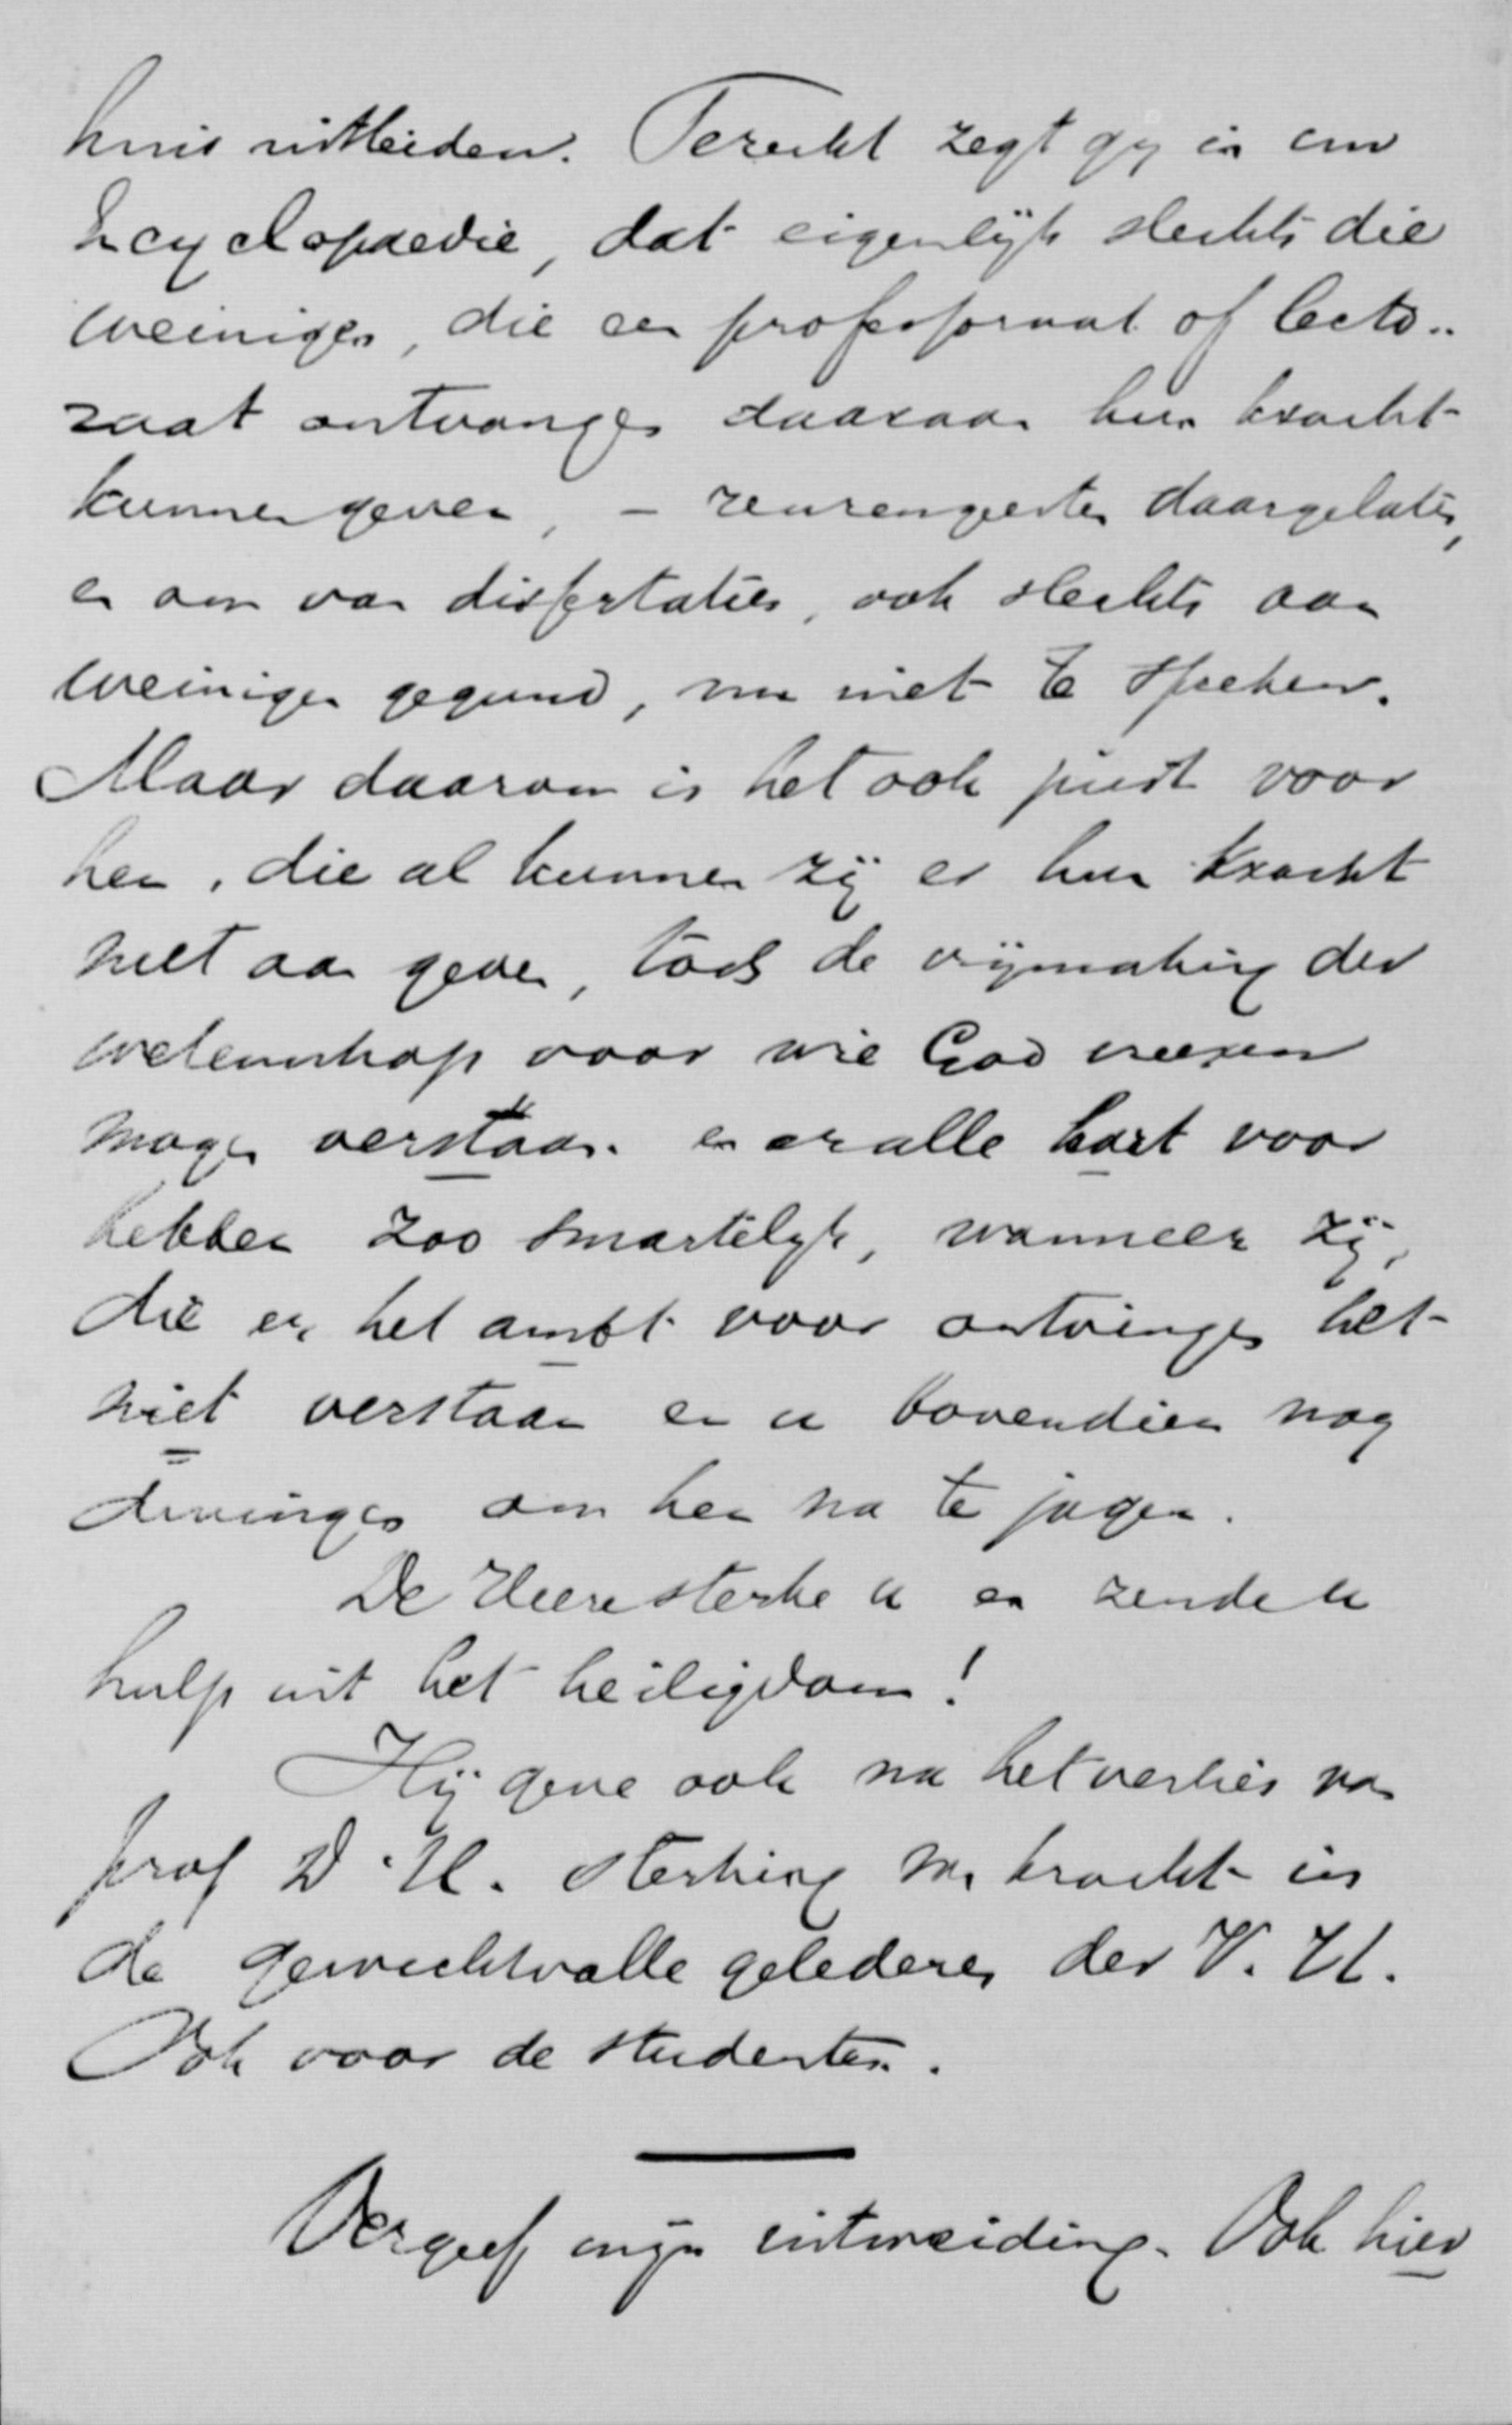 huis uitleiden. Terecht zegt gij in uw
Encyclopaedie, dat eigenlijk slechts die
weinigen, die een professoraat of lecto-
raat ontvangen daaraan hun kracht
kunnen geven, – reuzengeesten daargelaten,
en om van dissertaties, ook slechts aan
weinigen gegund, nu niet te spreken.
Maar daarom is het ook juist voor
hen, die al kunnen zij er hun kracht
niet aan geven, toch de vrijmaking der
wetenschap voor wie God vreezen
mogen verstaan en er alle hart voor
hebben zoo smartelijk, wanneer zij,
die er het ambt voor ontvingen het
niet verstaan en u bovendien nog
dwingen om hen na te jagen.
De Heere sterke u en zende u
hulp uit het heiligdom!
Hij geve ook na het verlies van
prof D. H. sterking en kracht in
de gewichtvolle gelederen der V. U.
Ook voor de studenten.
Vergeef mijn uitweiding. Ook hier